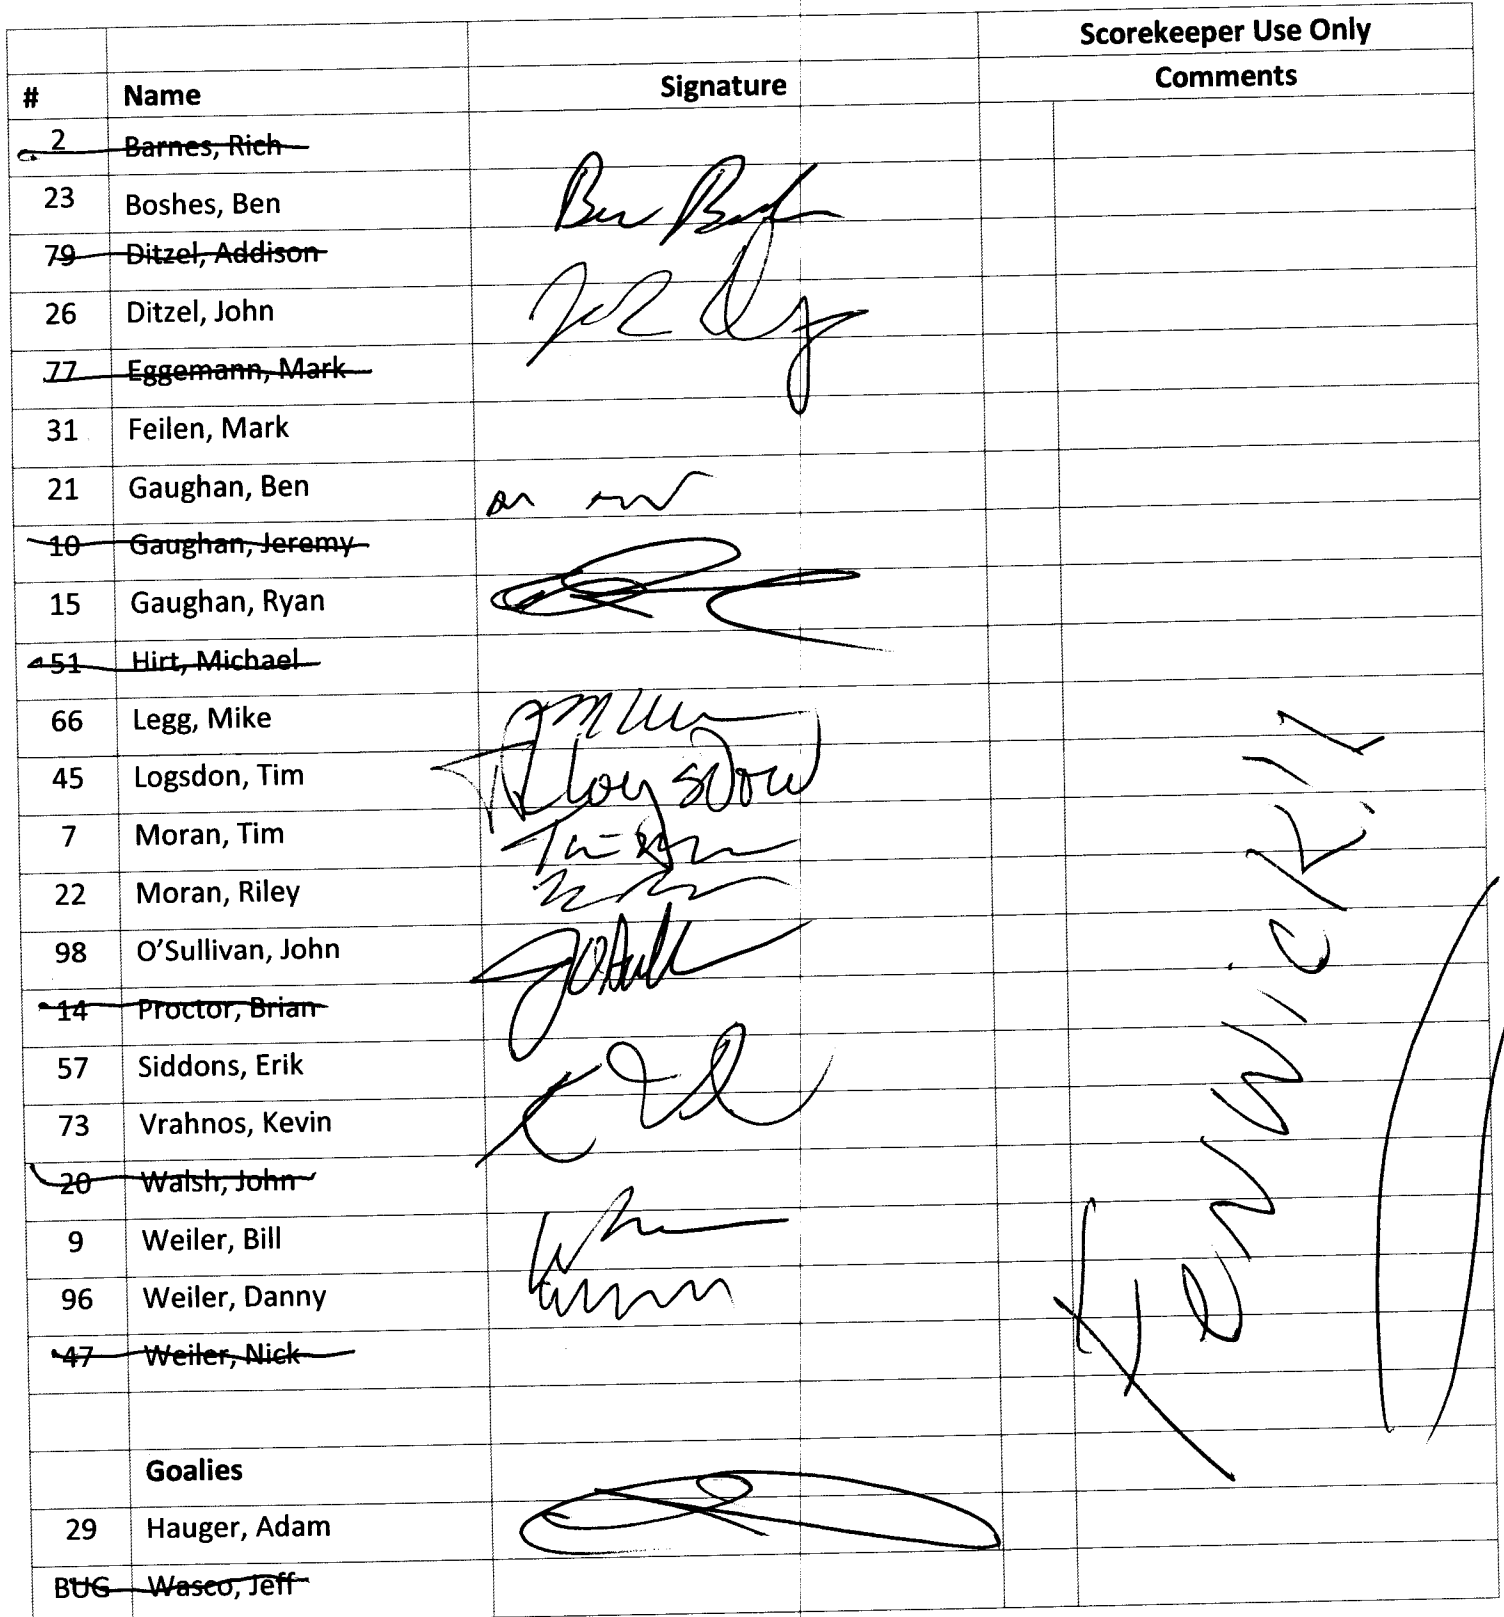 Scorekeeper Use Only
# Name Signature Comments
2 Barnes, Rich
23 Boshes, Ben
79 Ditzel, Addison
26 Ditzel, John
77 Eggemann, Mark
31 Feilen, Mark
21 Gaughan, Ben
10 Gaughan, Jeremy
15 Gaughan, Ryan
51 Hirt, Michael
66 Legg, Mike
45 Logsdon, Tim
7 Moran, Tim
22 Moran, Riley
98 O'Sullivan, John
14 Proctor, Brian
57 Siddons, Erik
73 Vrahnos, Kevin
20 Walsh, John
9 Weiler, Bill
96 Weiler, Danny
47 Weiler, Nick
Goalies
29 Hauger, Adam
BUG Wasco, Jeff